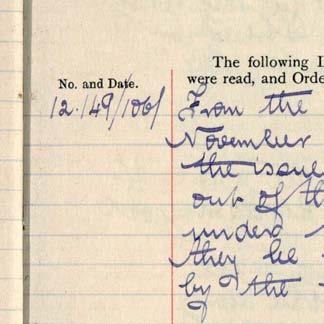 The following
were read, and Orde
No. and Date.
12.149/1061 From the
November
the issue
out of th
undersd
they be
by the